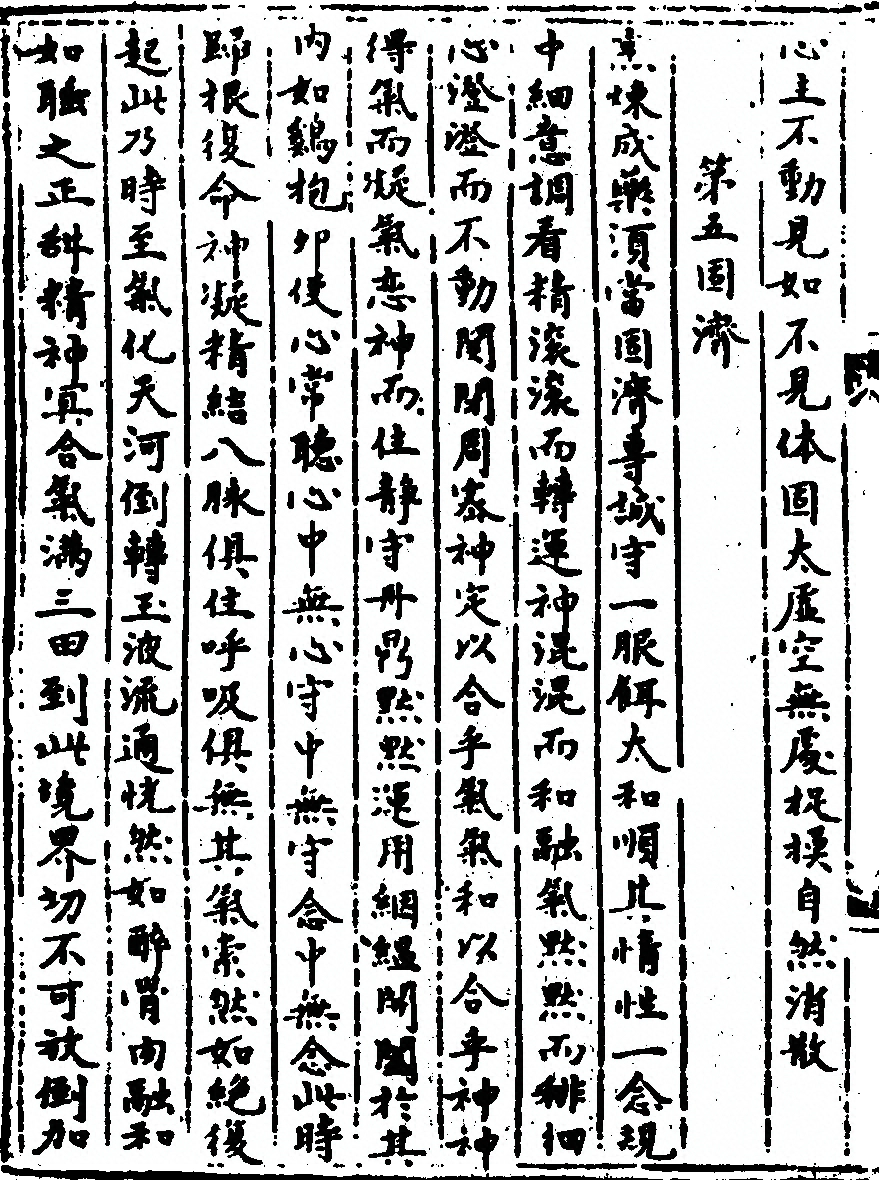 心主不動見如不見体固太虛空無處捉摸自然消散
第五固濟
烹煉成藥須當固濟專誠守一服餌太和順其情性一念規
中細意調看精滾滾而轉運神混混而和融氣默默而徘徊
心澄澄而不動関閉周密神定以合乎氣氣和以合乎神神
得氣而凝氣恋神而住静守丹鼎默默運用絪緼開闔於其
内如鷄抱卵使心常聽心中無心守中無守念中無念此時
歸根復命神凝精結八脉俱住呼吸俱無其氣索然如絕復
起此乃時至氣化天河倒轉玉液流通恍然如醉骨肉融和
如睡之正酣精神冥合氣滿三田到此境界切不可放倒加